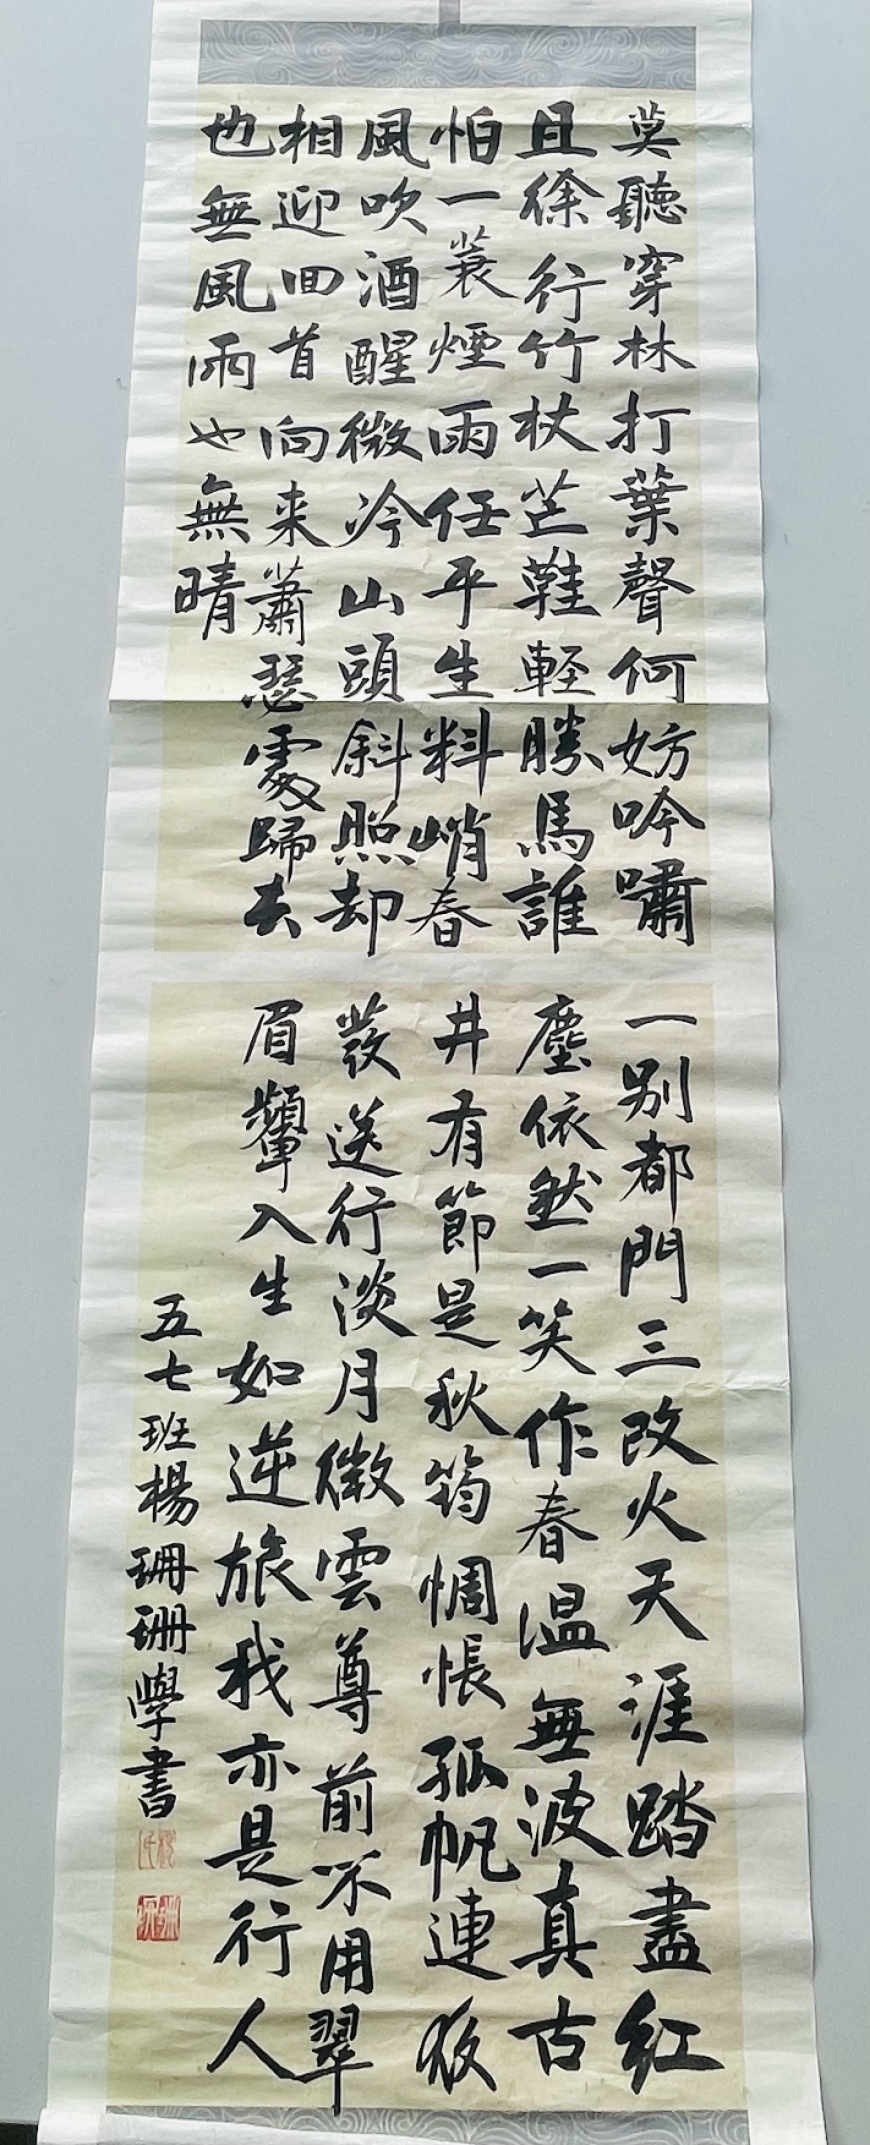 莫聽穿林打葉聲何妨吟嘯
且徐行竹杖芒鞋軽勝馬誰
怕一蓑煙雨任平生料峭春
風吹酒醒微冷山頭斜照却
相迎回首向来蕭瑟處歸去
也無風雨也無晴
一别都門三改火天涯踏盡紅
塵依然一笑作春温無波真古
井有節是秋筠惆悵孤帆連夜
發送行淡月微雲尊前不用翠
眉顰人生如逆旅我亦是行人
五七班楊珊珊學書